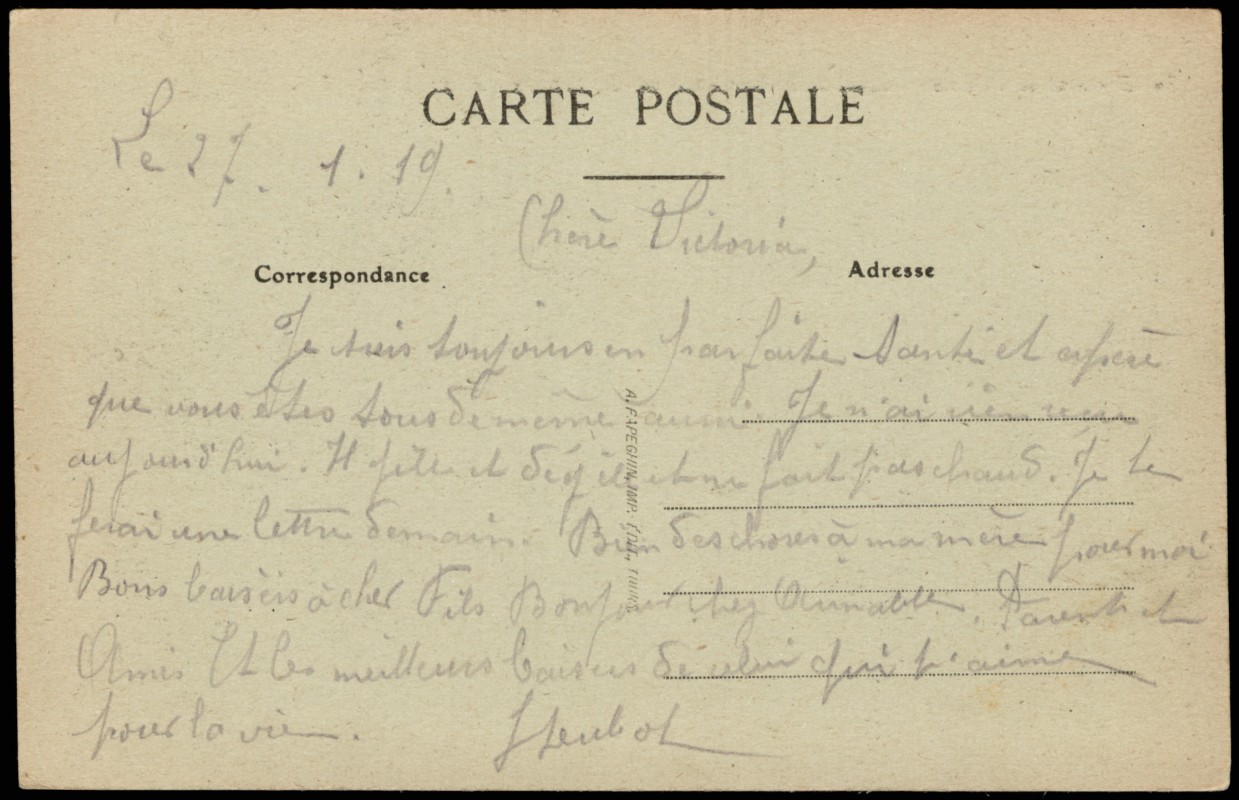 CARTE POSTALE
Le 27. 1. 19.
Chère Victoria,
Correspondance
Adresse
Je suis toujours en parfaite santé et espère
que vous êtes tous de même aussi. Je n'ai rien reçu
aujourd'hui. Il gèle et dégèle et ne fait pas chaud. Je te
ferai une lettre demain. Bien des choses à ma mère pour moi
Bons baisers à cher Fils Bonjour chez Aimable. Parents et
Amis Et les meilleurs baisers de celui qui t'aime
pour la vie.
A. PAPEGHIN, IMP. EDIT., TOURS